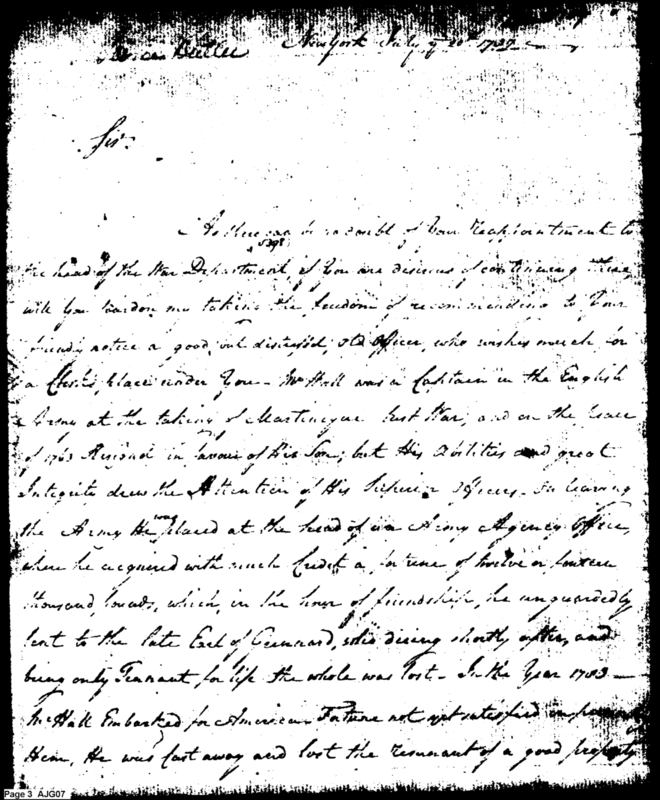 New York July y 20th 1789
Pierce Butler
Sir.
As there can be no doubt of Your reappointment to
5398
the head of the War Department, if You are desirous of continuing there,
will You pardon my taking the freedom of recommending to Your
friendly notice a good, but distressed, old officer, who wishes much for
a Clerks place under You - Mr Hall was a Captain in the English
Army at the taking of Martineque last War, and on the Peace
of 1763 Resignd in favour of His Son; but His Abilities and great
Integrity drew the Attention of His Superior Officers. On leaving
the Army He was placed at the head of an Army Agency Office,
where he acquired with much Credit a fortune of twelve or fourteen
thousand pounds, which, in the hour of friendship, he unguardedly
lent to the late Earl of who dieing shortly after, and
being only Tennant for life the whole was lost - In the Year 1783
Mr Hall Embarked for America Fortune not yet satisfied in
Him, He was Cast away and lost the remnant of a good property
Page 3 AJG07